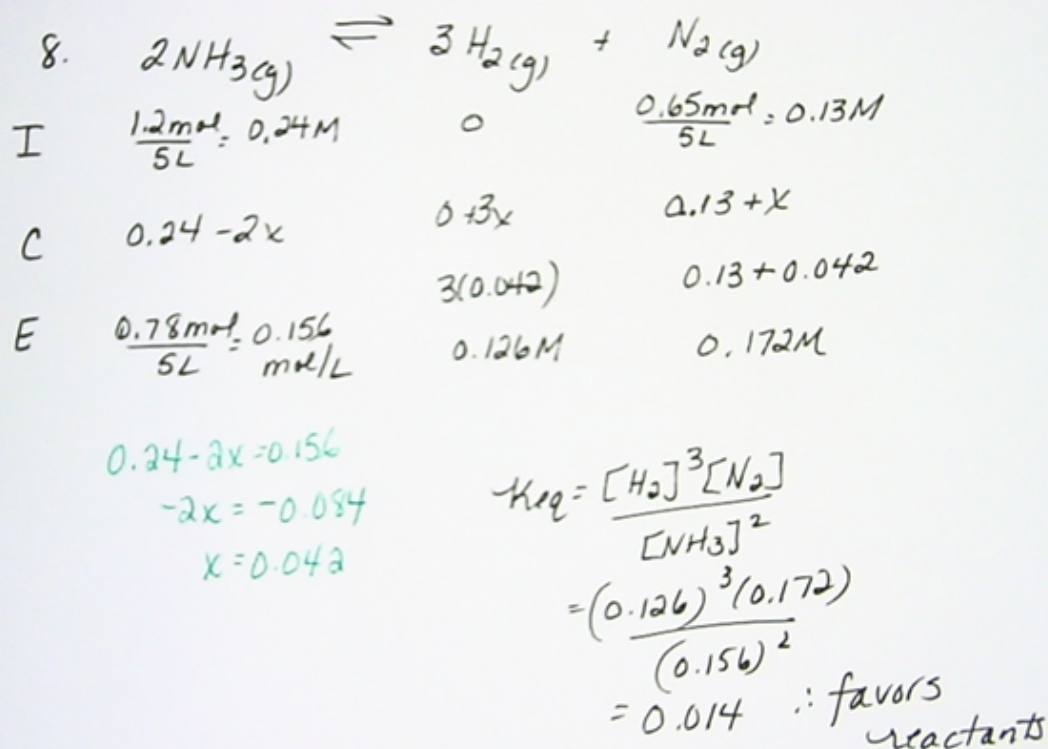 8. 2NH₃(g) ⇌ 3H₂(g) + N₂(g)
I 1.2mol/5L = 0.24M 0 0.65mol/5L = 0.13M
C 0.24 - 2x 0+3x 0.13 + x
3(0.042) 0.13 + 0.042
E 0.78mol/5L = 0.156 mol/L 0.126M 0.172M
0.24 - 2x = 0.156
-2x = -0.084
x = 0.042
Keq = [H₂]³[N₂]/[NH₃]²
= (0.126)³(0.172)/(0.156)²
= 0.014 ∴ favors
reactants